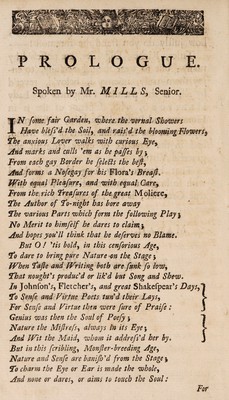 PROLOGUE.
Spoken by Mr. MILLS, Senior.
IN some fair Garden, where the vernal Showers
Have bless'd the Soil, and rais'd the blooming Flowers,
The anxious Lover walks with curious Eye,
And marks and culls 'em as he passes by;
From each gay Border he selects the best,
And forms a Nosegay for his Flora's Breast.
With equal Pleasure, and with equal Care,
From the rich Treasures of the great Moliere,
The Author of To-night has bore away
The various Parts which form the following Play;
No Merit to himself he dares to claim,
And hopes you'll think that he deserves no Blame.
But O! 'tis bold, in this censorious Age,
To dare to bring pure Nature on the Stage;
When Taste and Writing both are sunk so low,
That nought's produc'd or lik'd but Song and Show.
In Johnson's, Fletcher's, and great Shakespear's Days,
To Sense and Virtue Poets tun'd their Lays,
For Sense and Virtue then were sure of Praise:
Genius was then the Soul of Poesy;
Nature the Mistress, always in its Eye;
And Wit the Maid, whom it address'd her by.
But in this scribling, Monster-breeding Age,
Nature and Sense are banish'd from the Stage;
To charm the Eye or Ear is made the whole,
And none or dares, or aims to touch the Soul:
For